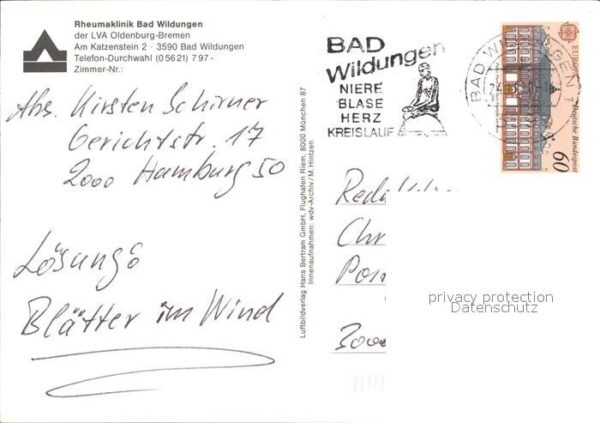 Rheumaklinik Bad Wildungen
der LVA Oldenburg-Bremen
Am Katzenstein 2 · 3590 Bad Wildungen
Telefon-Durchwahl (05621) 797-
Zimmer-Nr.:
Abs. Kirsten Schirner
Gerichtstr. 17
2000 Hamburg 50
Lösung:
Blätter im Wind
Luftbildverlag Hans Bertram GmbH, Flughafen Riem, 8000 München 87
Innenaufnahmen: wdv-Archiv/M. Hintzen
BAD
Wildungen
NIERE
BLASE
HERZ
KREISLAUF
BAD WILDUNGEN 1
EUROPA
Deutsche Bundespost
60
Chr
3000
privacy protection
Datenschutz